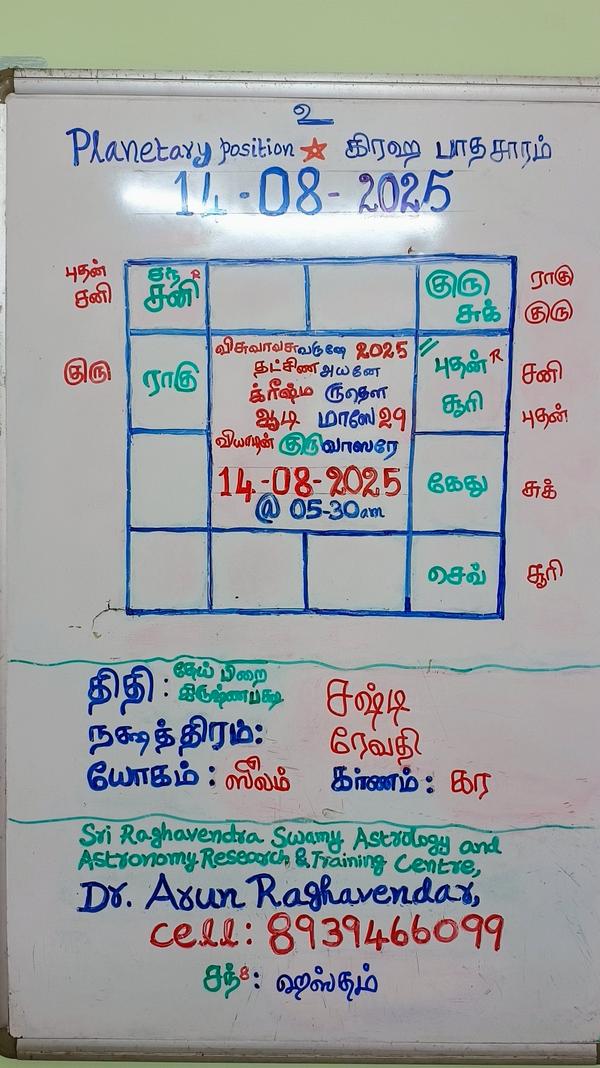 உ
Planetary position கிரஹ பாதசாரம்
14-08-2025
புதன்
சனி
சந்
சனி R
குரு
சுக்
ராகு
குரு
குரு
ராகு
விசுவாவசுவருஷே 2025
தட்சிண அயனே
க்ரீஷ்ம ருதௌ
ஆடி மாஸே 29
வியாழன் குருவாஸரே
14-08-2025
@ 05-30am
புதன் R
சூரி
சனி
புதன்
கேது
சுக்
செவ்
சூரி
திதி: தேய் பிறை
கிருஷ்ணபக்ஷ
சஷ்டி
நக்ஷத்திரம்: ரேவதி
யோகம்: கர்ணம்: கர
Sri Raghavendra Swamy Astrology and
Astronomy Research & Training Centre,
Dr. Arun Raghavendar,
cell: 8939466099
சந் 8: ஹஸ்தம்